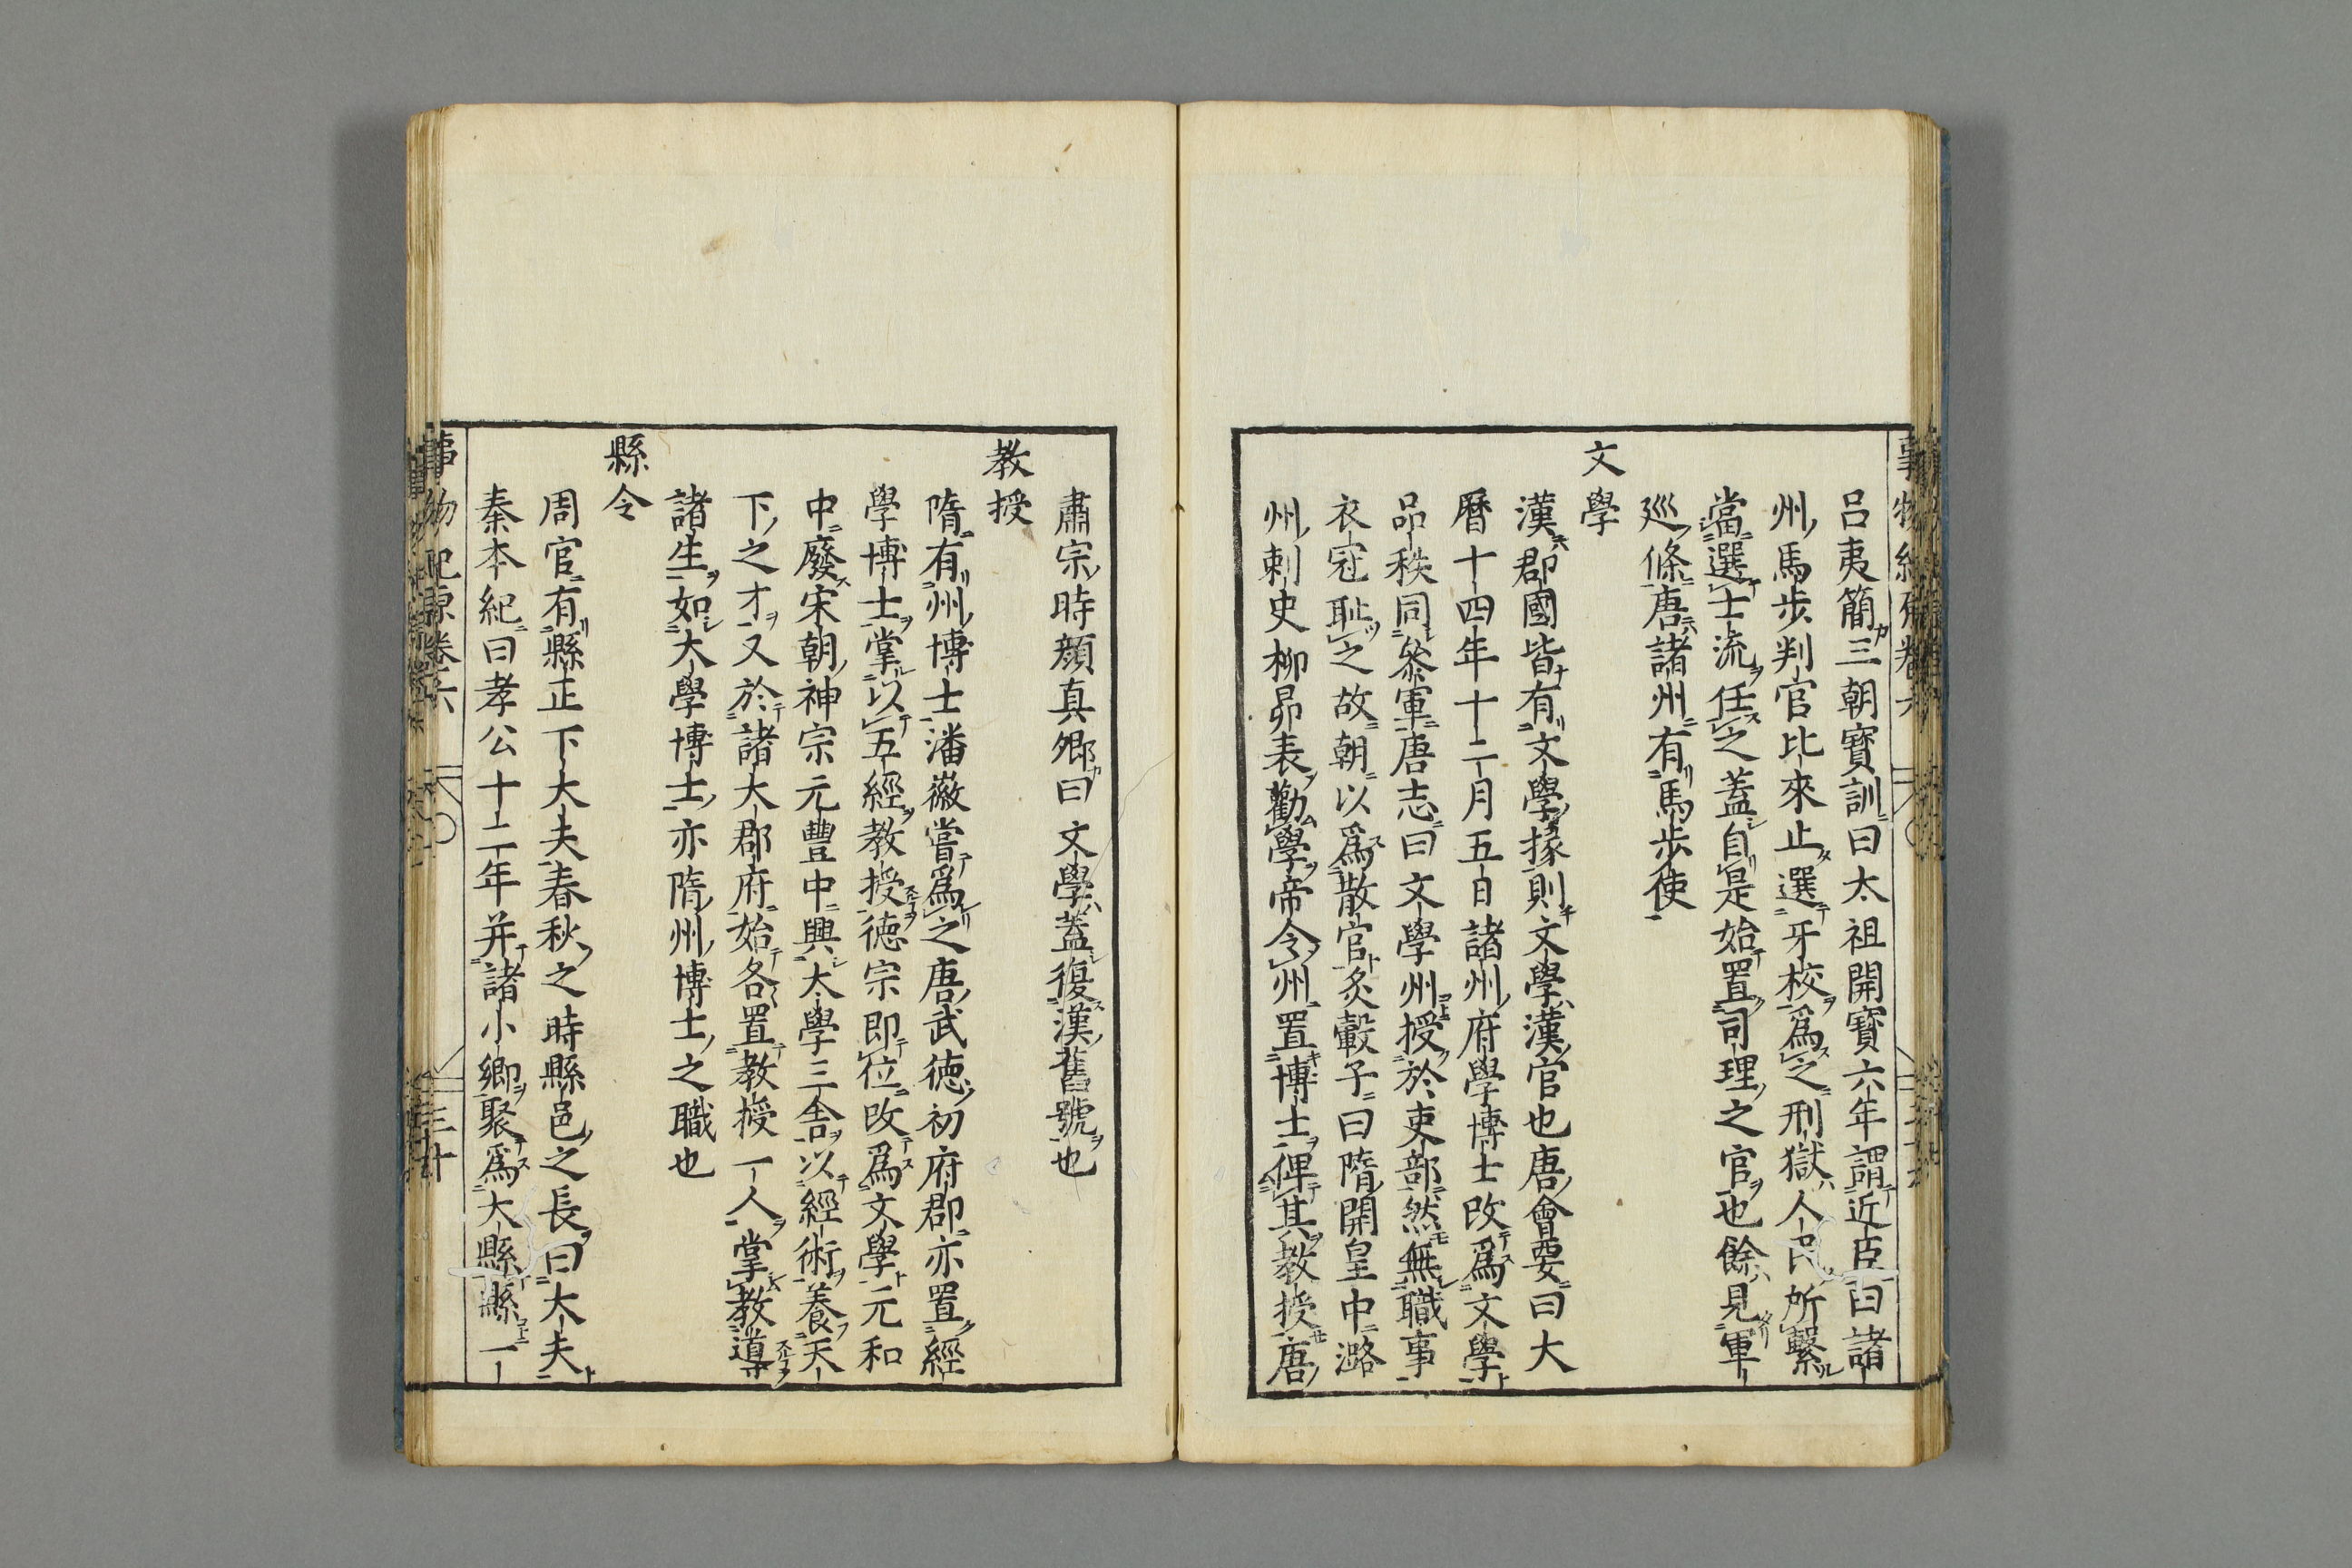 呂夷簡三朝寳訓曰太祖開寳六年謂近臣曰諸
州馬步判官比來止選牙校爲之刑獄人民所繫
當選士流任之蓋自是始置司理之官也餘見軍
廵條唐諸州有馬步使
文學
漢郡國皆有文學掾則文學漢官也唐會要曰大
曆十四年十二月五日諸州府學博士改爲文學
品秩同參軍唐志曰文學州授於吏部然無職事
衣冠恥之故朝以爲散官炙轂子曰隋開皇中潞
州刺史柳昂表勸學帝令州置博士俾其教授唐
肅宗時顔真卿曰文學蓋復漢舊號也
教授
隋有州博士潘徽嘗爲之唐武徳初府郡亦置經
學博士掌以五經教授徳宗即位改爲文學元和
中廢宋朝神宗元豐中興大學三舎以經術養天
下之才又於諸大郡府始各置教授一人掌教導
諸生如大學博士亦隋州博士之職也
縣令
周官有縣正下大夫春秋之時縣邑之長曰大夫
秦本紀曰孝公十二年并諸小鄉聚爲大縣縣一
事物紀原卷六
三十